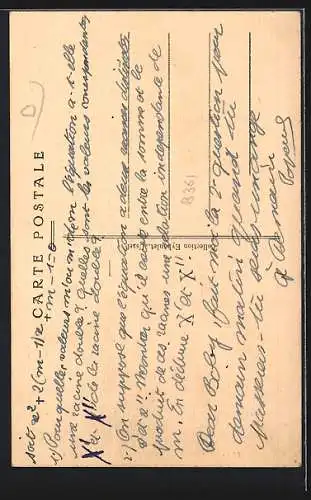 CARTE POSTALE
soit x² + 2(m-1)x
+ m - 1 = 0
1) Pour quelles valeurs m' ou m'' de m l'équation a-t-elle
une racine double? Quelles sont les valeurs correspondantes
X' et X'' de la racine double?
2) On suppose que l'équation a deux racines distinctes
x' et x'' Montrer qu'il existe entre la somme et le
produit de ces racines une relation indépendante de
m. En déduire X' et X''
Dear Boby, fait moi la 2e question pour
demain matin quand tu
seras
B361
Collection